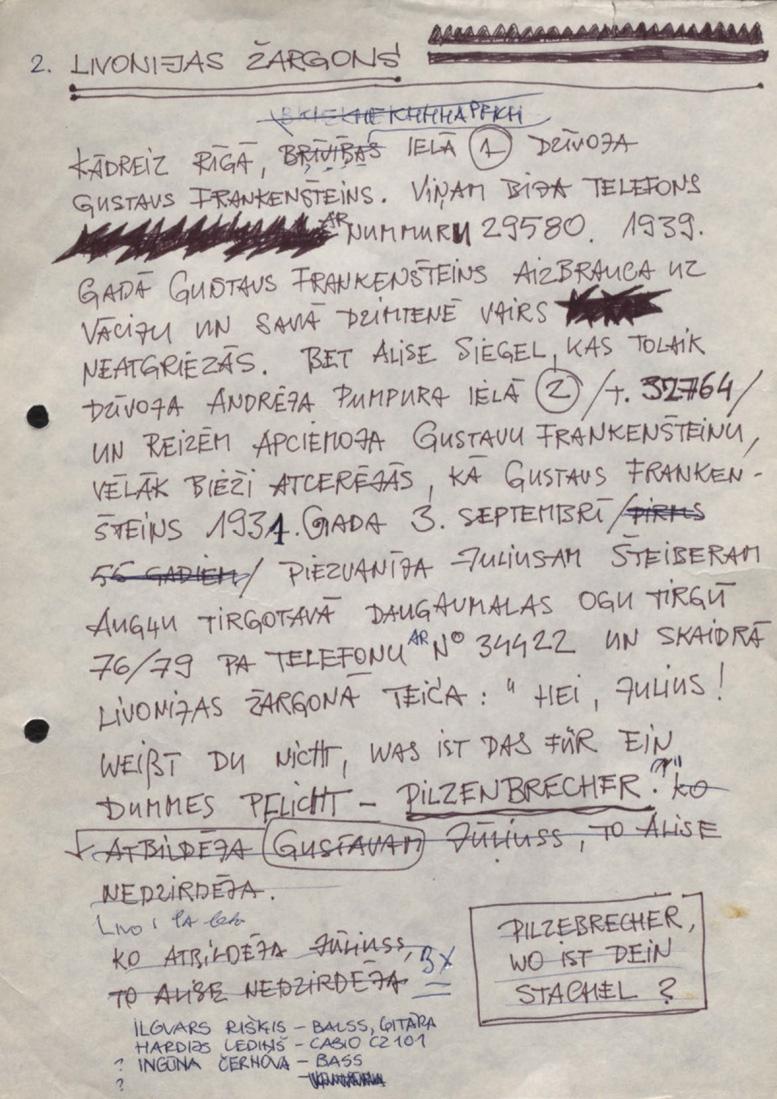 2. LIVONIJAS ŽARGONS
KĀDREIZ RĪGĀ, BRĪVĪBAS IELĀ 1 DZĪVOJA
GUSTAVS FRANKENŠTEINS. VIŅAM BIJA TELEFONS
AR NUMMURU 29580. 1939.
GADĀ GUSTAVS FRANKENŠTEINS AIZBRAUCA UZ
VĀCIJU UN SAVĀ DZIMTENĒ VAIRS
NEATGRIEZĀS. BET ALISE SIEGEL, KAS TOLAIK
DZĪVOJA ANDRĒJA PUMPURA IELĀ 2 /T. 32764/
UN REIZĒM APCIEMOJA GUSTAVU FRANKENŠTEINU,
VĒLĀK BIEŽI ATCERĒJĀS, KĀ GUSTAVS FRANKEN-
ŠTEINS 1931. GADA 3. SEPTEMBRĪ /PIRMS
56 GADIEM/ PIEZVANĪJA JULIUSAM ŠTEIBERAM
AUGĻU TIRGOTAVĀ DAUGAVMALAS OGU TIRGŪ
76/79 PA TELEFONU AR Nº 34422 UN SKAIDRĀ
LIVONIJAS ŽARGONĀ TEICA: "HEI, JULIUS!
WEIßT DU NICHT, WAS IST DAS FÜR EIN
DUMMES PFLICHT – PILZENBRECHER?" KO
ATBILDĒJA GUSTAVAM JŪLIUSS, TO ALISE
NEDZIRDĒJA.
KO ATBILDĒJA JŪLIUSS, 3X
TO ALISE NEDZIRDĒJA
PILZEBRECHER,
WO IST DEIN
STACHEL?
ILGVARS RIŠĶIS – BALSS, ĢITĀRA
HARDIJS LEDIŅŠ – CASIO CZ101
? INGŪNA ČERNOVA – BASS
?